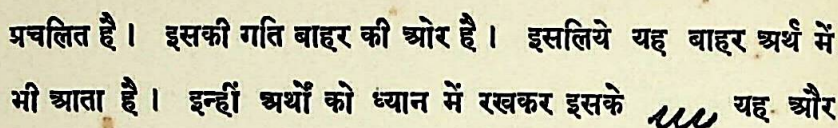 प्रचलित है। इसकी गति बाहर की ओर है। इसलिये यह बाहर अर्थ में
भी आता है। इन्हीं अर्थों को ध्यान में रखकर इसके यह और